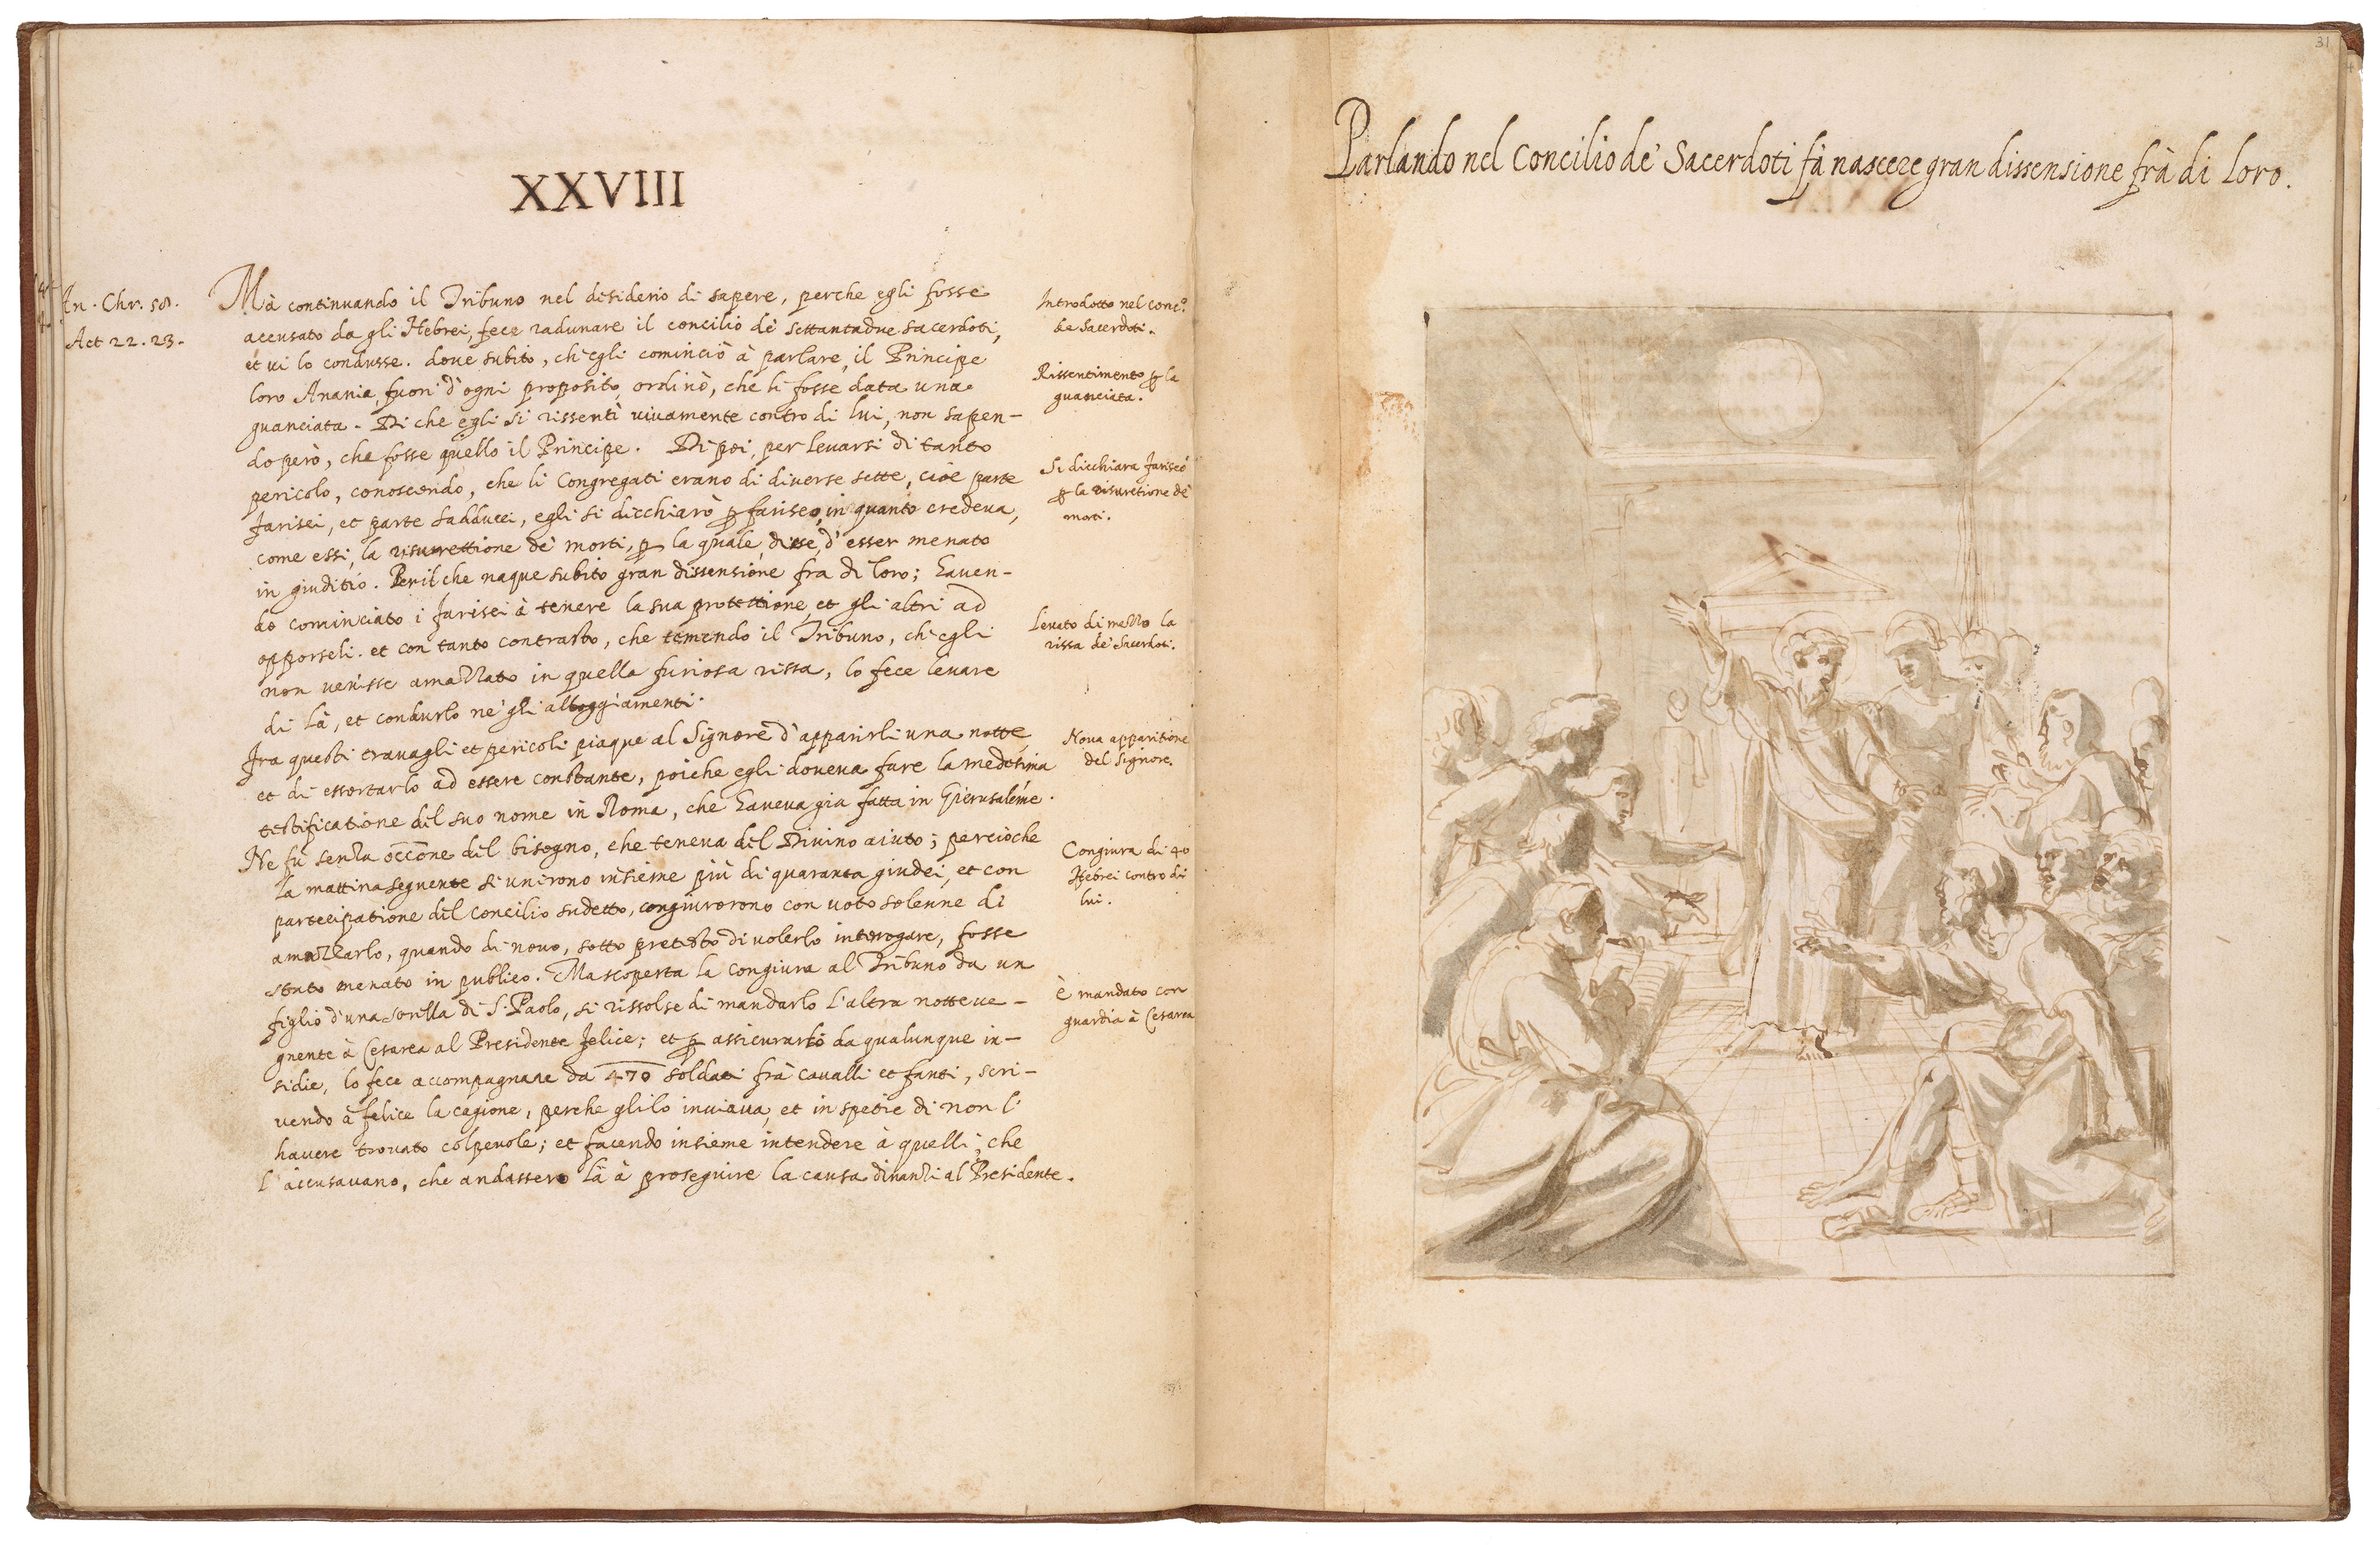 XXVIII
An. Chr. 58.
Act 22. 23.
Mà continuando il Tribuno nel desiderio di sapere, perche egli fosse
accusato da gli Hebrei, fece radunare il concilio de' settantadue sacerdoti,
et vi lo condusse. doue subito, ch'egli cominciò à parlare, il Principe
loro Anania, fuori d'ogni proposito, ordinò, che li fosse data una
guanciata. Di che egli si rissentì viuamente contro di lui, non sapen-
do però, che fosse quello il Principe. Di poi, per leuarsi di tanto
pericolo, conoscendo, che li Congregati erano di diuerse sette, cioè parte
farisei, et parte sadducei, egli si dicchiarò ꝑ fariseo, in quanto credeua,
come essi, la risurrettione de' morti, ꝑ la quale, disse, d'esser menato
in giuditio. Peril che naque subito gran dissensione fra di loro; hauen-
do cominciato i farisei à tenere la sua protettione, et gli altri ad
opporseli. et con tanto contrasto, che temendo il Tribuno, ch'egli
non venisse amazzato in quella furiosa rissa, lo fece leuare
di là, et condurlo ne' gli alloggiamenti.
Fra questi trauagli et pericoli piaque al Signore d'apparirli una notte,
et di essortarlo ad essere constante, poiche egli doueua fare la medesima
testificatione del suo nome in Roma, che haueua gia fatta in Gierusaleme.
Ne fù senza occ̄one del bisogno, che teneua del Diuino aiuto; percioche
la mattina seguente si unirono insieme più di quaranta giudei, et con
partecipatione del concilio sudetto, congiurorono con uoto solenne di
amazzarlo, quando di nouo, sotto pretesto di uolerlo interogare, fosse
stato menato in publico. Ma scoperta la congiura al Tribuno da un
figlio d'una sorella di S. Paolo, si rissolse di mandarlo l'altra notte ue-
gnente à Cesarea al Presidente Felice; et ꝑ assicurarlo da qualunque in-
sidie, lo fece accompagnare da 470 soldati frà caualli et fanti, scri-
vendo à felice la cagione, perche glilo inuiaua, et in spetie di non l'
hauere trouato colpeuole; et facendo insieme intendere à quelli, che
l'accusauano, che andassero là à proseguire la causa dinanzi al Presidente.
Introdotto nel conc.o
de Sacerdoti.
Rissentimento ꝑ la
guanciata.
Si dicchiara fariseo
ꝑ la risuretione de'
morti.
Leuato di mezzo la
rissa de' Sacerdoti.
Noua apparitione
del Signore.
Congiura di 40
Hebrei contro di
lui.
È mandato con
guardia à Cesarea
31
Parlando nel Concilio de' Sacerdoti fà nascere gran dissensione frà di loro.